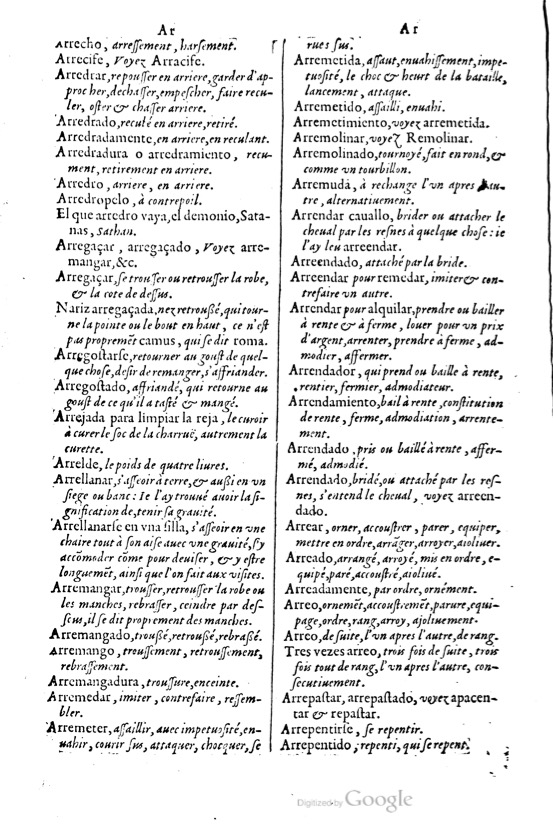 Ar
Arrecho, arressement, harsement.
Arrecife, Voyez Arracife.
Arredrar, repousser en arriere, garder d'ap-
procher, dechasser, empescher, faire recu-
ler, oster & chasser arriere.
Arredrado, reculé en arriere, retiré.
Arredradamente, en arriere, en reculant.
Arredradura o arredramiento, recu-
ment, retirement en arriere.
Arredro, arriere, en arriere.
Arredropelo, à contrepoil.
El que arredro vaya, el demonio, Sata-
nas, Sathan.
Arregaçar, arregaçado, Voyez arre-
mangar, &c.
Arregaçar, se trousser ou retrousser la robe,
& la cote de dessus.
Nariz arregaçada, nez retroußé, qui tour-
ne la pointe ou le bout en haut, ce n'est
pas propremēt camus, qui se dit roma.
Arregostarse, retourner au goust de quel-
que chose, desir de remanger, s'affriander.
Arregostado, affriandé, qui retourne au
goust de ce qu'il a tasté & mangé.
Arrejada para limpiar la reja, le curoir
à curer le soc de la charruë, autrement la
curette.
Arrelde, le poids de quatre liures.
Arrellanar, s'asseoir à terre, & außi en vn
siege ou banc: Ie l'ay trouué auoir la si-
gnification de, tenir sa grauité.
Arrellanarse en vna silla, s'asseoir en vne
chaire tout à son aise auec vne grauité, s'y
accōmoder cōme pour deuiser, & y estre
longuemēt, ainsi que l'on fait aux visites.
Arremangar, trousser, retrousser la robe ou
les manches, rebrasser, ceindre par des-
sus, il se dit proprement des manches.
Arremangado, troußé, retroußé, rebraßé.
Arremango, troussement, retroussement,
rebrassement.
Arremangadura, troussure, enceinte.
Arremedar, imiter, contrefaire, ressem-
bler.
Arremeter, assaillir, auec impetuosité, en-
uahir, courir sus, attaquer, chocquer, se
Ar
rues sus.
Arremetida, assaut, enuahissement, impe-
tuosité, le choc & heurt de la bataille,
lancement, attaque.
Arremetido, assailli, enuahi.
Arremetimiento, voyez arremetida.
Arremolinar, voyez Remolinar.
Arremolinado, tournoyé, fait en rond, &
comme vn tourbillon.
Arremuda, à rechange l'vn apres
tre, alternatiuement.
Arrendar cauallo, brider ou attacher le
cheual par les resnes à quelque chose: ie
l'ay leu arreendar.
Arreendado, attaché par la bride.
Arreendar pour remedar, imiter & con-
trefaire vn autre.
Arrendar pour alquilar, prendre ou bailler
à rente & à ferme, louer pour vn prix
d'argent, arrenter, prendre à ferme, ad-
modier, affermer.
Arrendador, qui prend ou baille à rente,
rentier, fermier, admodiateur.
Arrendamiento, bail à rente, constitution
de rente, ferme, admodiation, arrente-
ment.
Arrendado, pris ou baillé à rente, affer-
mé, admodié.
Arrendado, bridé, ou attaché par les res-
nes, s'entend le cheual, voyez arreen-
dado.
Arrear, orner, accoustrer, parer, equiper,
mettre en ordre, arrāger, arroyer, aioliuer.
Arreado, arrangé, arroyé, mis en ordre, e-
quipé, paré, accoustré, aioliué.
Arreadamente, par ordre, ornément.
Arreo, ornemēt, accoustremēt, parure, equi-
page, ordre, rang, arroy, ajoliuement.
Arreo, de suite, l'vn apres l'autre, de rang.
Tres vezes arreo, trois fois de suite, trois
fois tout de rang, l'vn apres l'autre, con-
secutiuement.
Arrepastar, arrepastado, voyez apacen-
tar & repastar.
Arrepentirse, se repentir.
Arrepentido, repenti, qui se repent.
Digitized by Google